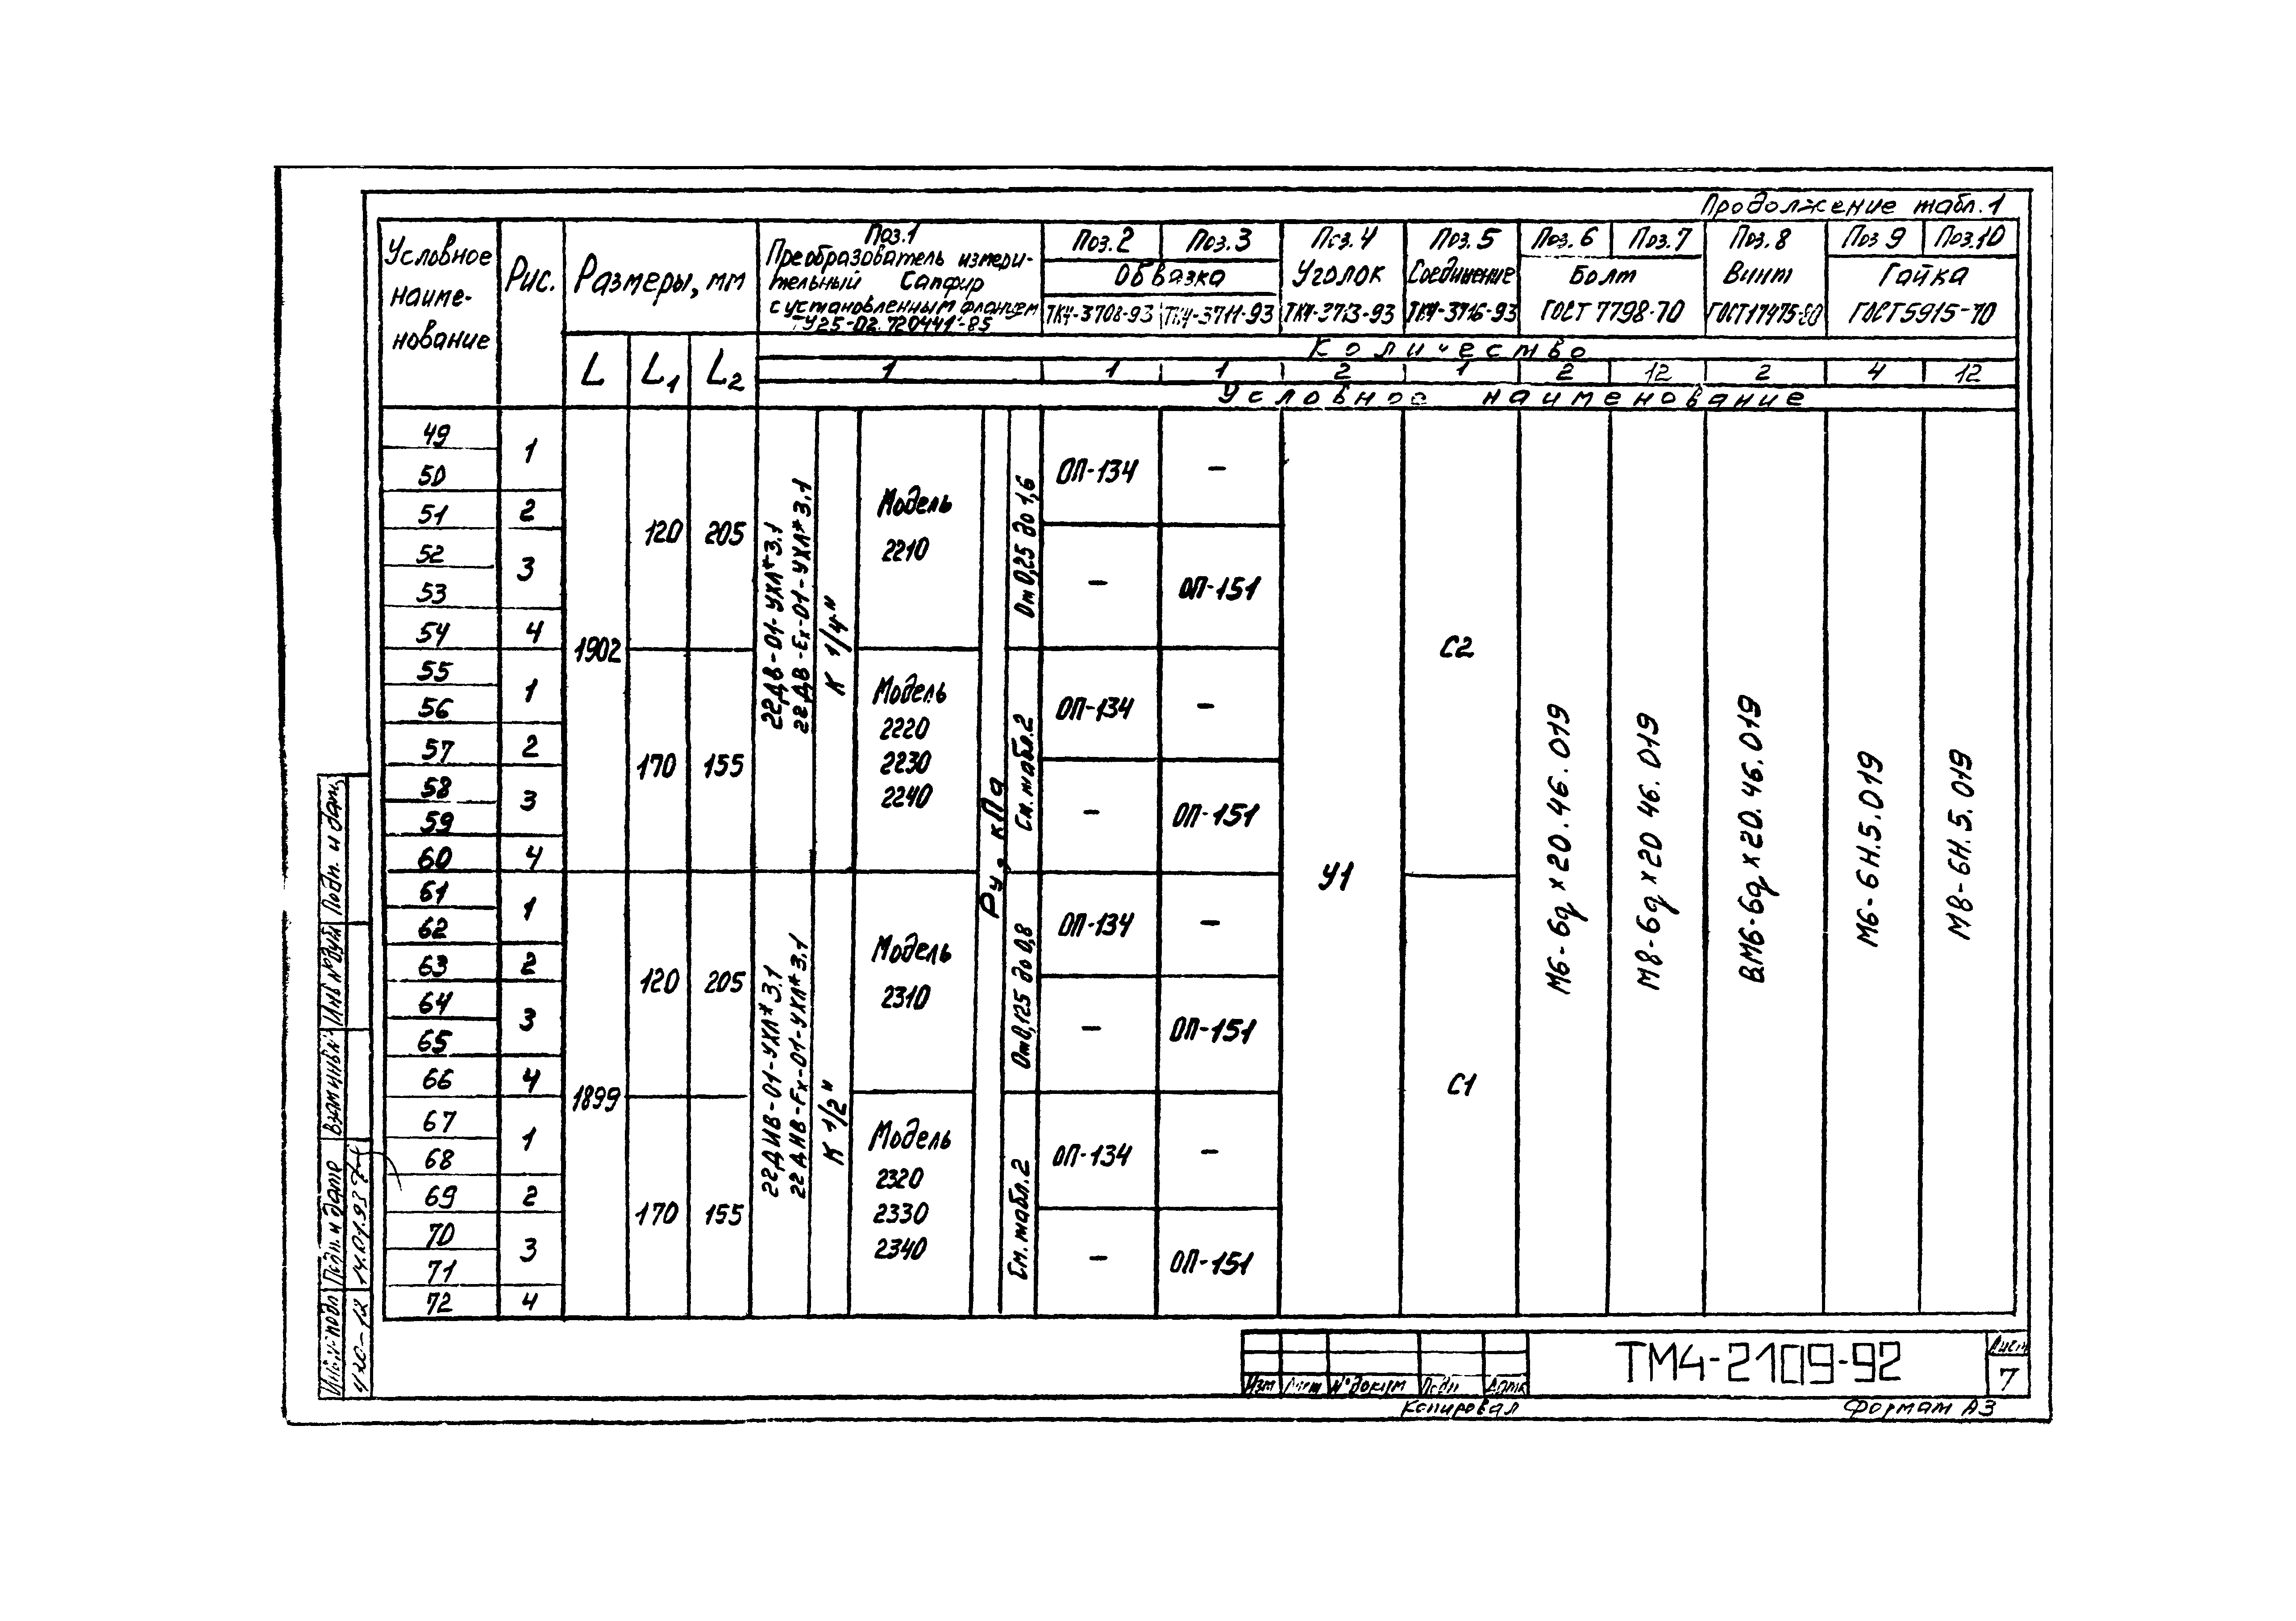 Продолжение табл. 1
Условное наиме-нование
Рис.
Размеры, мм
L L1 L2
Поз.1
Преобразователь измери-
тельный Сапфир
с установленным фланцем
ТУ25-02.720441-85
Поз.2 Поз.3
Обвязка
ТК4-3708-93 ТК4-3711-93
Поз.4
Уголок
ТК4-3713-93
Поз.5
Соединение
ТК4-3716-93
Поз.6 Поз.7
Болт
ГОСТ 7798-70
Поз.8
Винт
ГОСТ17475-80
Поз 9 Поз.10
Гайка
ГОСТ5915-70
Количество
1 1 1 2 1 2 12 2 4 12
Условное наименование
49 1
50
51 2
52 3
53
54 4
55 1
56
57 2
58 3
59
60 4
61 1
62
63 2
64 3
65
66 4
67 1
68
69 2
70 3
71
72 4
1902
120 205
170 155
1899
120 205
170 155
22ДВ-01-УХЛ*3.1
22ДВ-Ех-01-УХЛ*3.1
К 1/4"
22ДИВ-01-УХЛ*3.1
22ДИВ-Ех-01-УХЛ*3.1
К 1/2"
Модель
2210
Модель
2220
2230
2240
Модель
2310
Модель
2320
2330
2340
Ру, кПа
От 0,25 до 1,6
См. табл.2
От 0,125 до 0,8
См. табл.2
ОП-134 -
- ОП-151
ОП-134 -
- ОП-151
ОП-134 -
- ОП-151
ОП-134 -
- ОП-151
У1
С2
С1
М6-6g×20.46.019
М8-6g×20 46.019
ВМ6-6g×20.46.019
М6-6Н.5.019
М8-6Н.5.019
Подп. и дата
Инв № дубл
Взам инв.№
Подп. и дата
14.01.93
Инв.№ подл
Изм Лист № докум Подп Дата
ТМ4-2109-92
Лист
7
Копировал
Формат А3